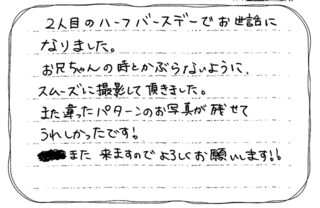 2人目のハーフバースデーでお世話に
なりました。
お兄ちゃんの時とかぶらないように、
スムーズに撮影して頂きました。
また違ったパターンのお写真が残せて
うれしかったです!
また来ますのでよろしくお願いします!!